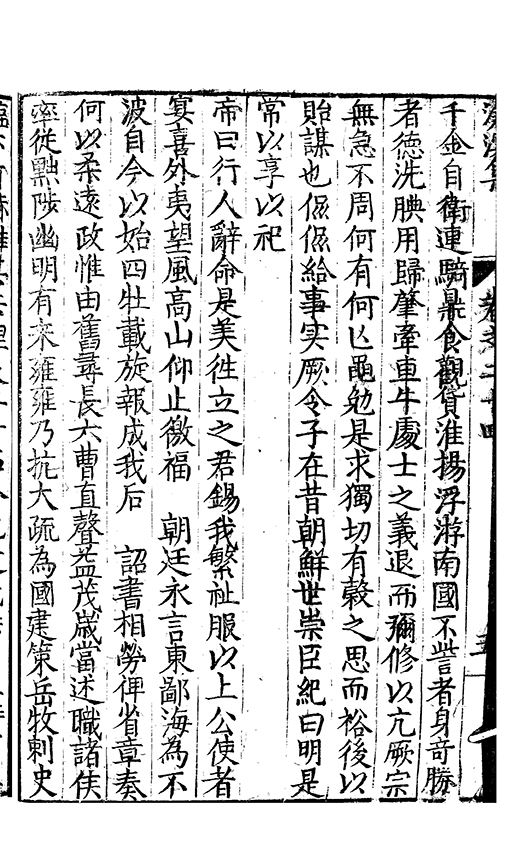 千金自衛連騎鼎食觀貨淮揚浮游南國不訾者身奇勝
者德洗腆用歸肇牽車牛處士之義退而彌修以亢厥宗
無急不周何有何亡黽勉是求獨切有穀之思而裕後以
貽謀也俶俶給事实厥令子在昔朝鮮世崇臣紀曰明是
常以享以祀
帝曰行人辭命是美徃立之君錫我繁祉服以上公使者
宴喜外夷望風高山仰止徼福　朝廷永言東鄙海為不
波自今以始四牡載旋報成我后　詔書相勞俾省章奏
何以柔遠政惟由舊尋長六曹直聲益茂歲當述職諸侯
率從黜陟幽明有来雍雍乃抗大疏為國建策岳牧刺史